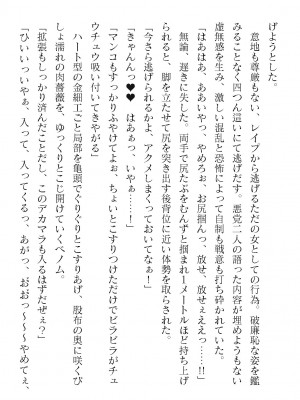 げようとした。
　意地も尊厳もない、レイプから逃げるただの女としての姿。破廉恥な姿を鑑
みることなく四つん這いにて逃げだす。悪党二人の語った内容が埋めようもない
虚無感を生み、激しい混乱と恐怖によって自制も戦意も打ち砕かれていた。
「はあはあ、ああいやっ、やめろぉ、お尻掴んっ、放せ、放せぇええっ……!!」
　無論、遅きに失した。両手で尻たぶをむんずと掴まれ一メートルほど持ち上げ
られると、脚を立たせて尻を突き出す後背位に近い体勢を取らされた。
「今さら逃げられるかよ、アクメしまくっておいてなぁ！」
「きゃんんっ♥♥　はあぁっ、いや……！」
「マンコもすっかりふやけてよぉ。ちょいとこすりつけただけでビラビラがチュ
ウチュウ吸いついてきやがる」
　ハート型の金細工ごと局部を亀頭でぐりぐりとこすりあげ、股布の奥に咲くび
しょ濡れの肉薔薇を、ゆっくりとこじ開けていくベノム。
「拡張もしっかり済んだことだし、このデカマラも入るはずだぜぇ？」
「ひいいっいやぁ、入って、入ってくるっ、あがっ、おおっ～～～～やめてぇ、